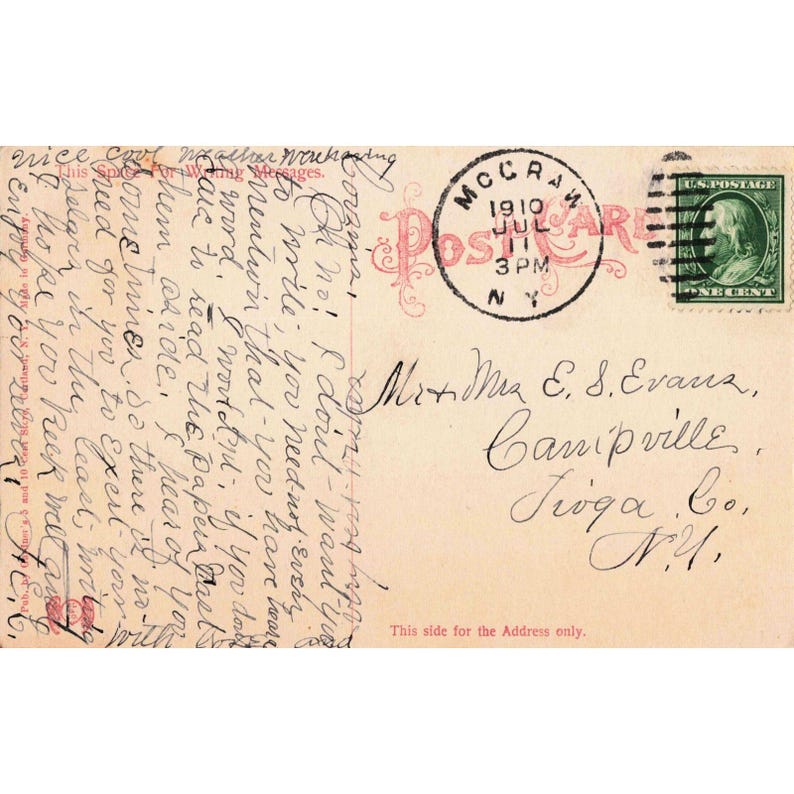 nice cool weather were having
This Space For Writing Messages.
Cousins,
Oh no! I don't want you
to write, you need not even
mention that you have heard
a word I wont if you dont
care to read the papers cast
them aside, I hear of you
some times. So there is no
need for you to exert your
selves in the least, but
I hope you keep well and
Enjoy your selves
with
Pub. by Gardner's 5 and 10 Cent Store, Cortland, N. Y. Made in Germany.
POST CARD
MCGRAW
1910
JUL
11
3PM
N Y
U.S. POSTAGE
ONE CENT
Mr & Mrs E. S. Evans,
Campville,
Tioga. Co.
N.Y.
This side for the Address only.